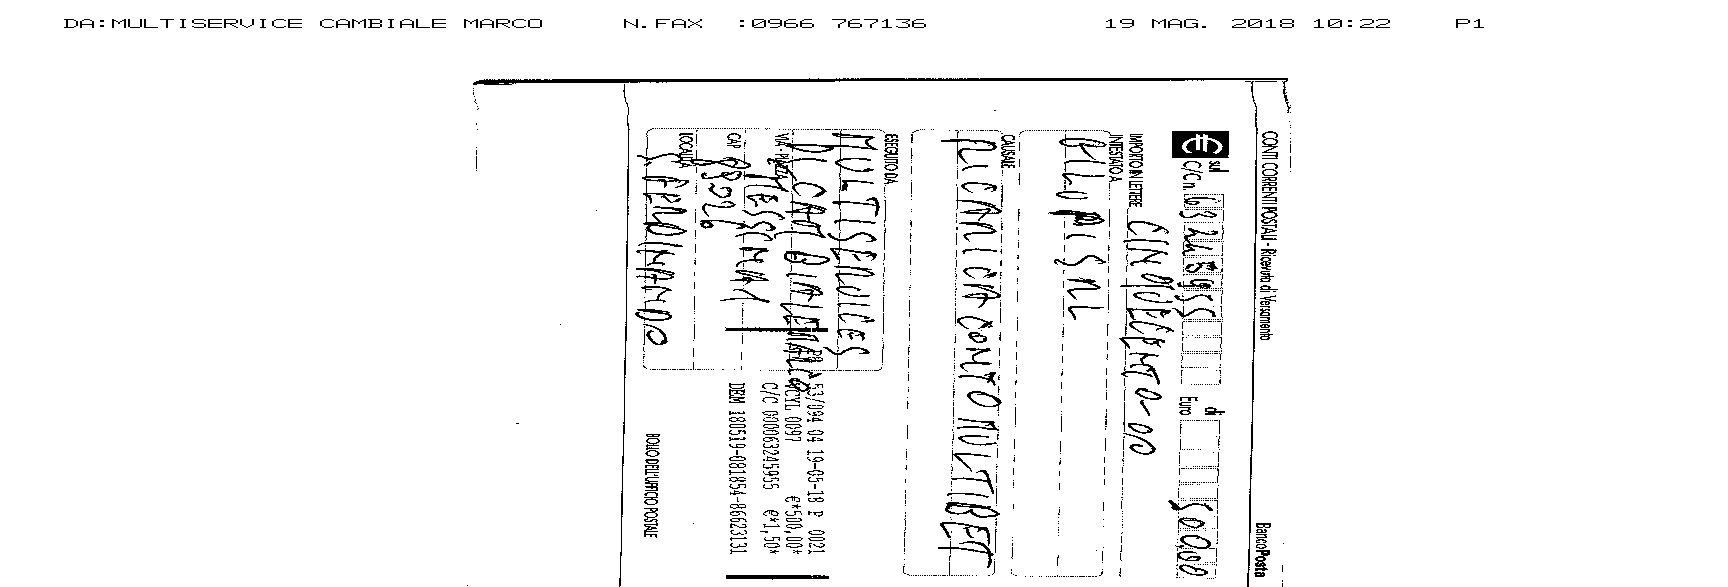 DA:MULTISERVICE CAMBIALE MARCO N.FAX :0966 767136 19 MAG. 2018 10:22 P1
CONTI CORRENTI POSTALI - Ricevuta di Versamento BancoPosta
sul C/C n. 63245955 di Euro 500,00
IMPORTO IN LETTERE CINQUECENTO-00
INTESTATO A
BILLO SRL
CAUSALE
RICARICA CONTO MULTIBET
ESEGUITO DA
MULTISERVICES
DI CAMBIALE MARCO
VIA - PIAZZA
CAP 89026
LOCALITÀ
S. FERDINANDO
53/094 04 19-05-18 P 0021
VCYL 0097 €*500,00*
C/C 000063245955 €*1,50*
DEM 180519-081854-86623131
BOLLO DELL'UFFICIO POSTALE